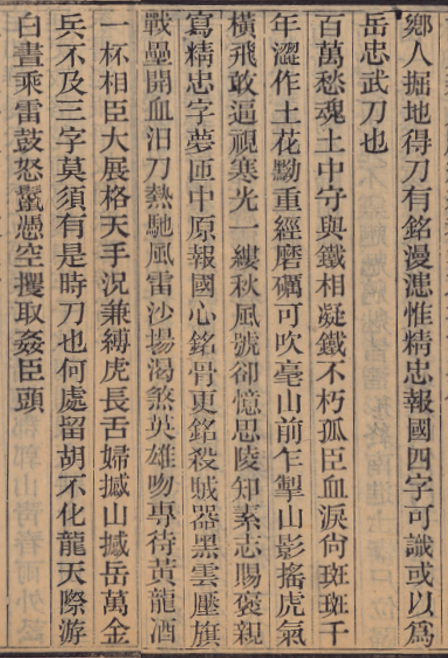 鄉人掘地得刀有銘漫漶惟精忠報國四字可識或以爲
岳忠武刀也
百萬愁魂土中守與鐵相凝鐵不朽孤臣血淚尙斑斑千
年澀作土花黝重經磨礪可吹毫山前乍掣山影搖虎氣
橫飛敢逼視寒光一縷秋風號卻憶思陵知素志賜褒親
寫精忠字夢匝中原報國心銘骨更銘殺賊器黑雲壓旗
戰壘開血汨刀熱馳風雷沙場渴煞英雄吻專待黃龍酒
一杯相臣大展格天手況兼縛虎長舌婦撼山撼岳萬金
兵不及三字莫須有是時刀也何處留胡不化龍天際游
白晝乘雷鼓怒鬣憑空攫取姦臣頭